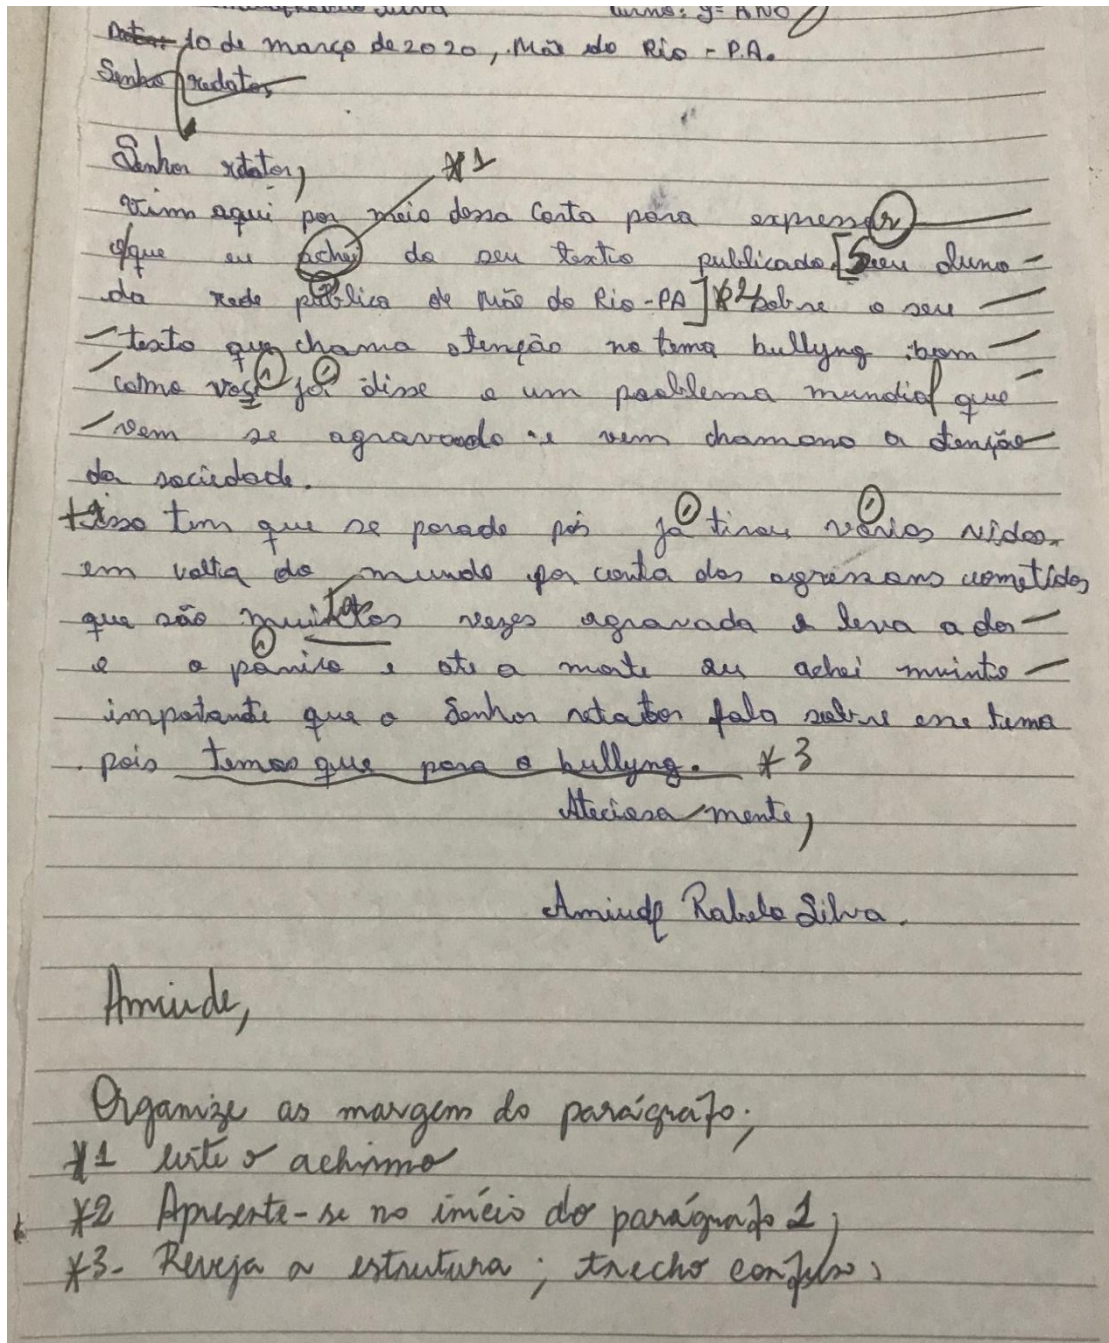 Silva turno: 9º ANO
Data: 10 de março de 2020, Mãe do Rio - P.A.
Senhor redator,
Senhor retator, *1
Vim aqui por meio dessa Carta para expressar
o que eu achei do seu textio publicado. [Seu aluno
da rede pública de Mãe do Rio-PA] *2 sobre o seu
texto que chama atenção no tema bullyng :bom
como voçê já disse e um problema mundial que
vem se agravando e vem chamano a atenção
da sociedade.
Isso tem que se parado pós já tirou vários vidas.
em volta do mundo por conta das agressans cometidos
que são muintas vezes agravada e leva a dor
e o pânico e ate a morte eu achei muinto
importante que o Senhor retator fala sobre esse tema
pois temos que para o bullyng. *3
Ateciosa mente,
Amiude Rabelo Silva.
Amiude,
Organize as margem do parágrafo;
*1 evite o achismo
*2 Apresente-se no início do parágrafo 1;
*3- Reveja a estrutura; trecho confuso;